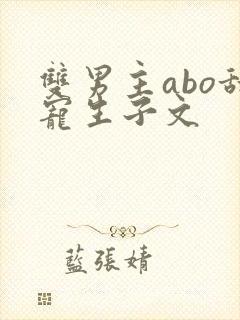 雙男主abo甜
寵生子文
藍張婧